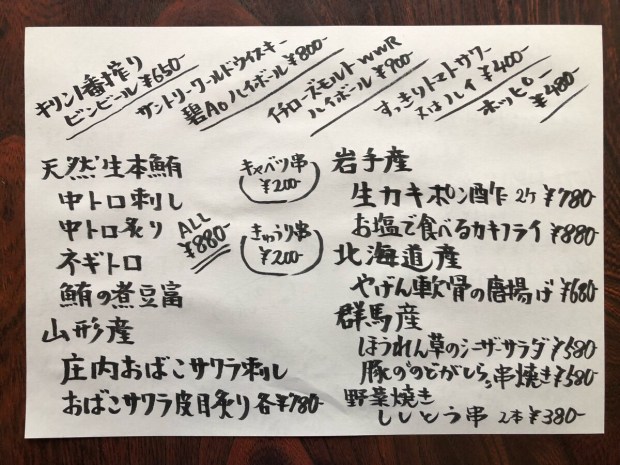 キリン1番搾り
ビンビール ¥650-
サントリーワールドウイスキー
碧Aoハイボール ¥800-
イチローズモルトWWR
ハイボール ¥900-
すっきりトマトサワー
又はハイ ¥400-
ホッピー
¥480-
天然生本鮪
中トロ刺し
中トロ炙り
ネギトロ
鮪の煮豆富
ALL
¥880-
山形産
庄内おばこサワラ刺し
おばこサワラ皮目炙り 各¥780-
キャベツ串
¥200-
きゅうり串
¥200-
岩手産
生カキポン酢 2ケ ¥780-
お塩で食べるカキフライ ¥880-
北海道産
やげん軟骨の唐揚げ ¥680-
群馬産
ほうれん草のシーザーサラダ ¥580-
豚ののどがしら串焼き ¥580-
野菜焼き
ししとう串 2本 ¥380-